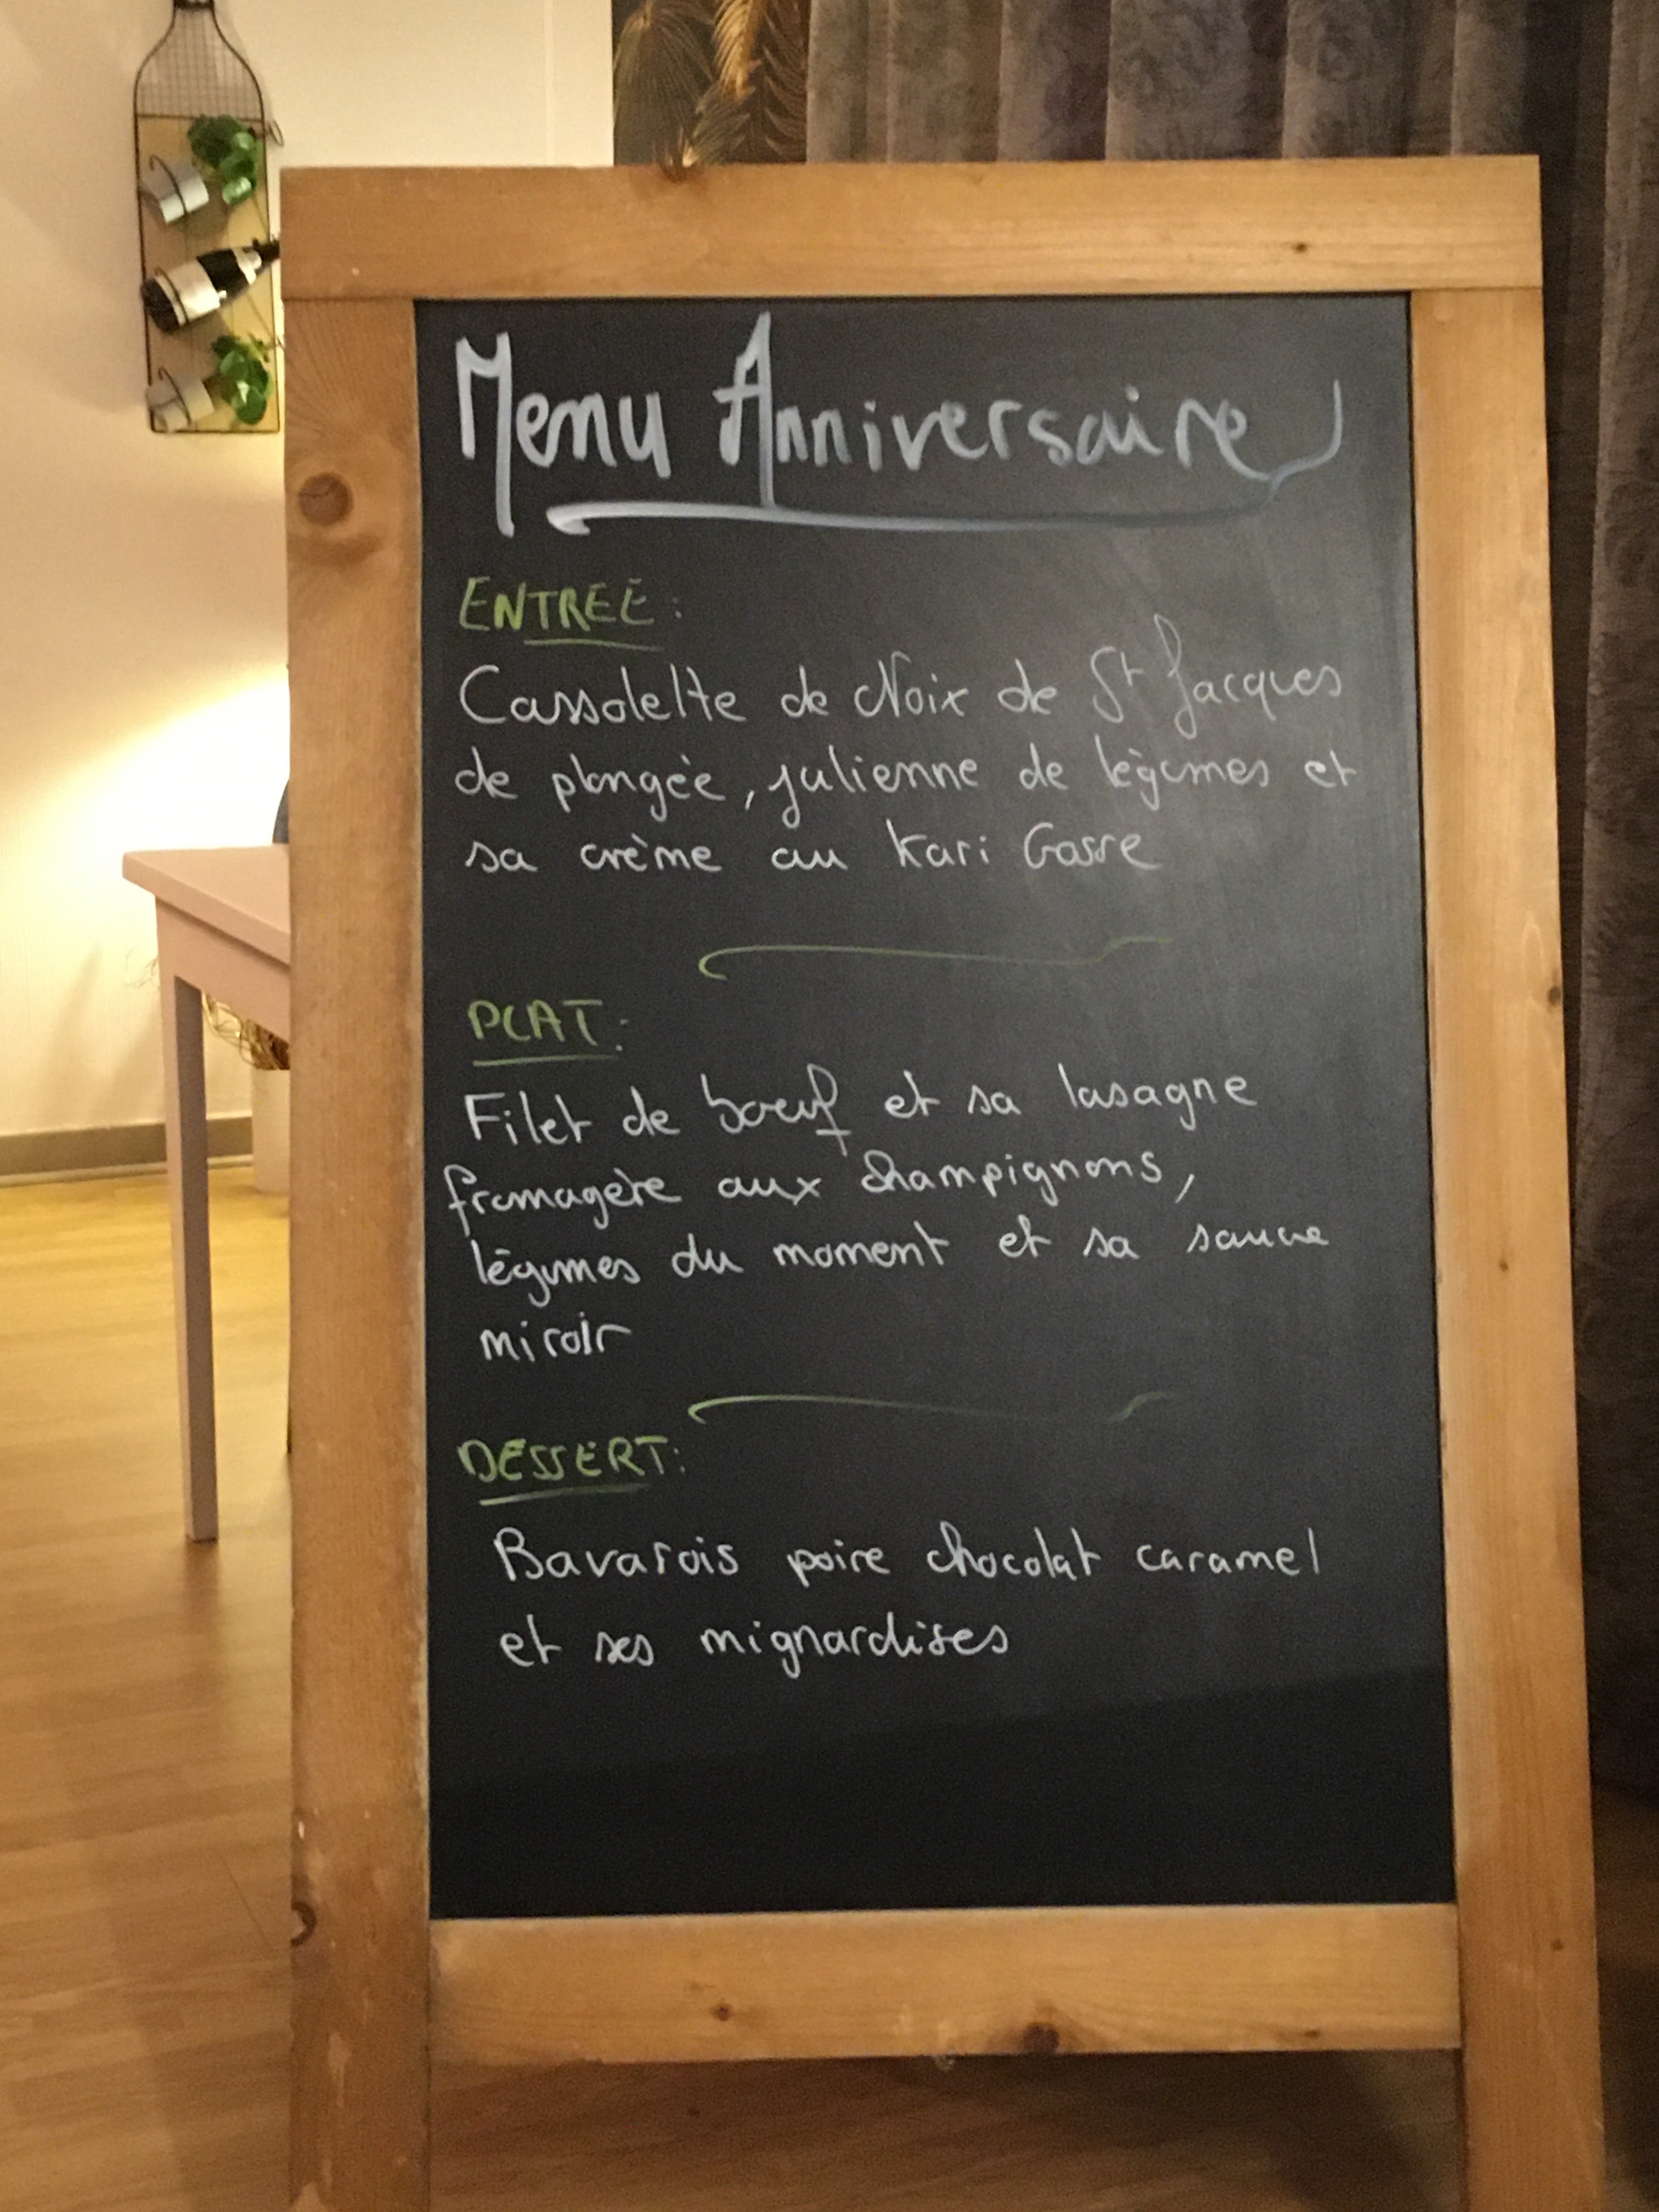 Menu Anniversaire
ENTREE:
Cassolette de Noix de St Jacques
de plongée, julienne de légumes et
sa crème au Kari Gosse
PLAT:
Filet de bœuf et sa lasagne
fromagère aux champignons,
légumes du moment et sa sauce
miroir
DESSERT:
Bavarois poire chocolat caramel
et ses mignardises